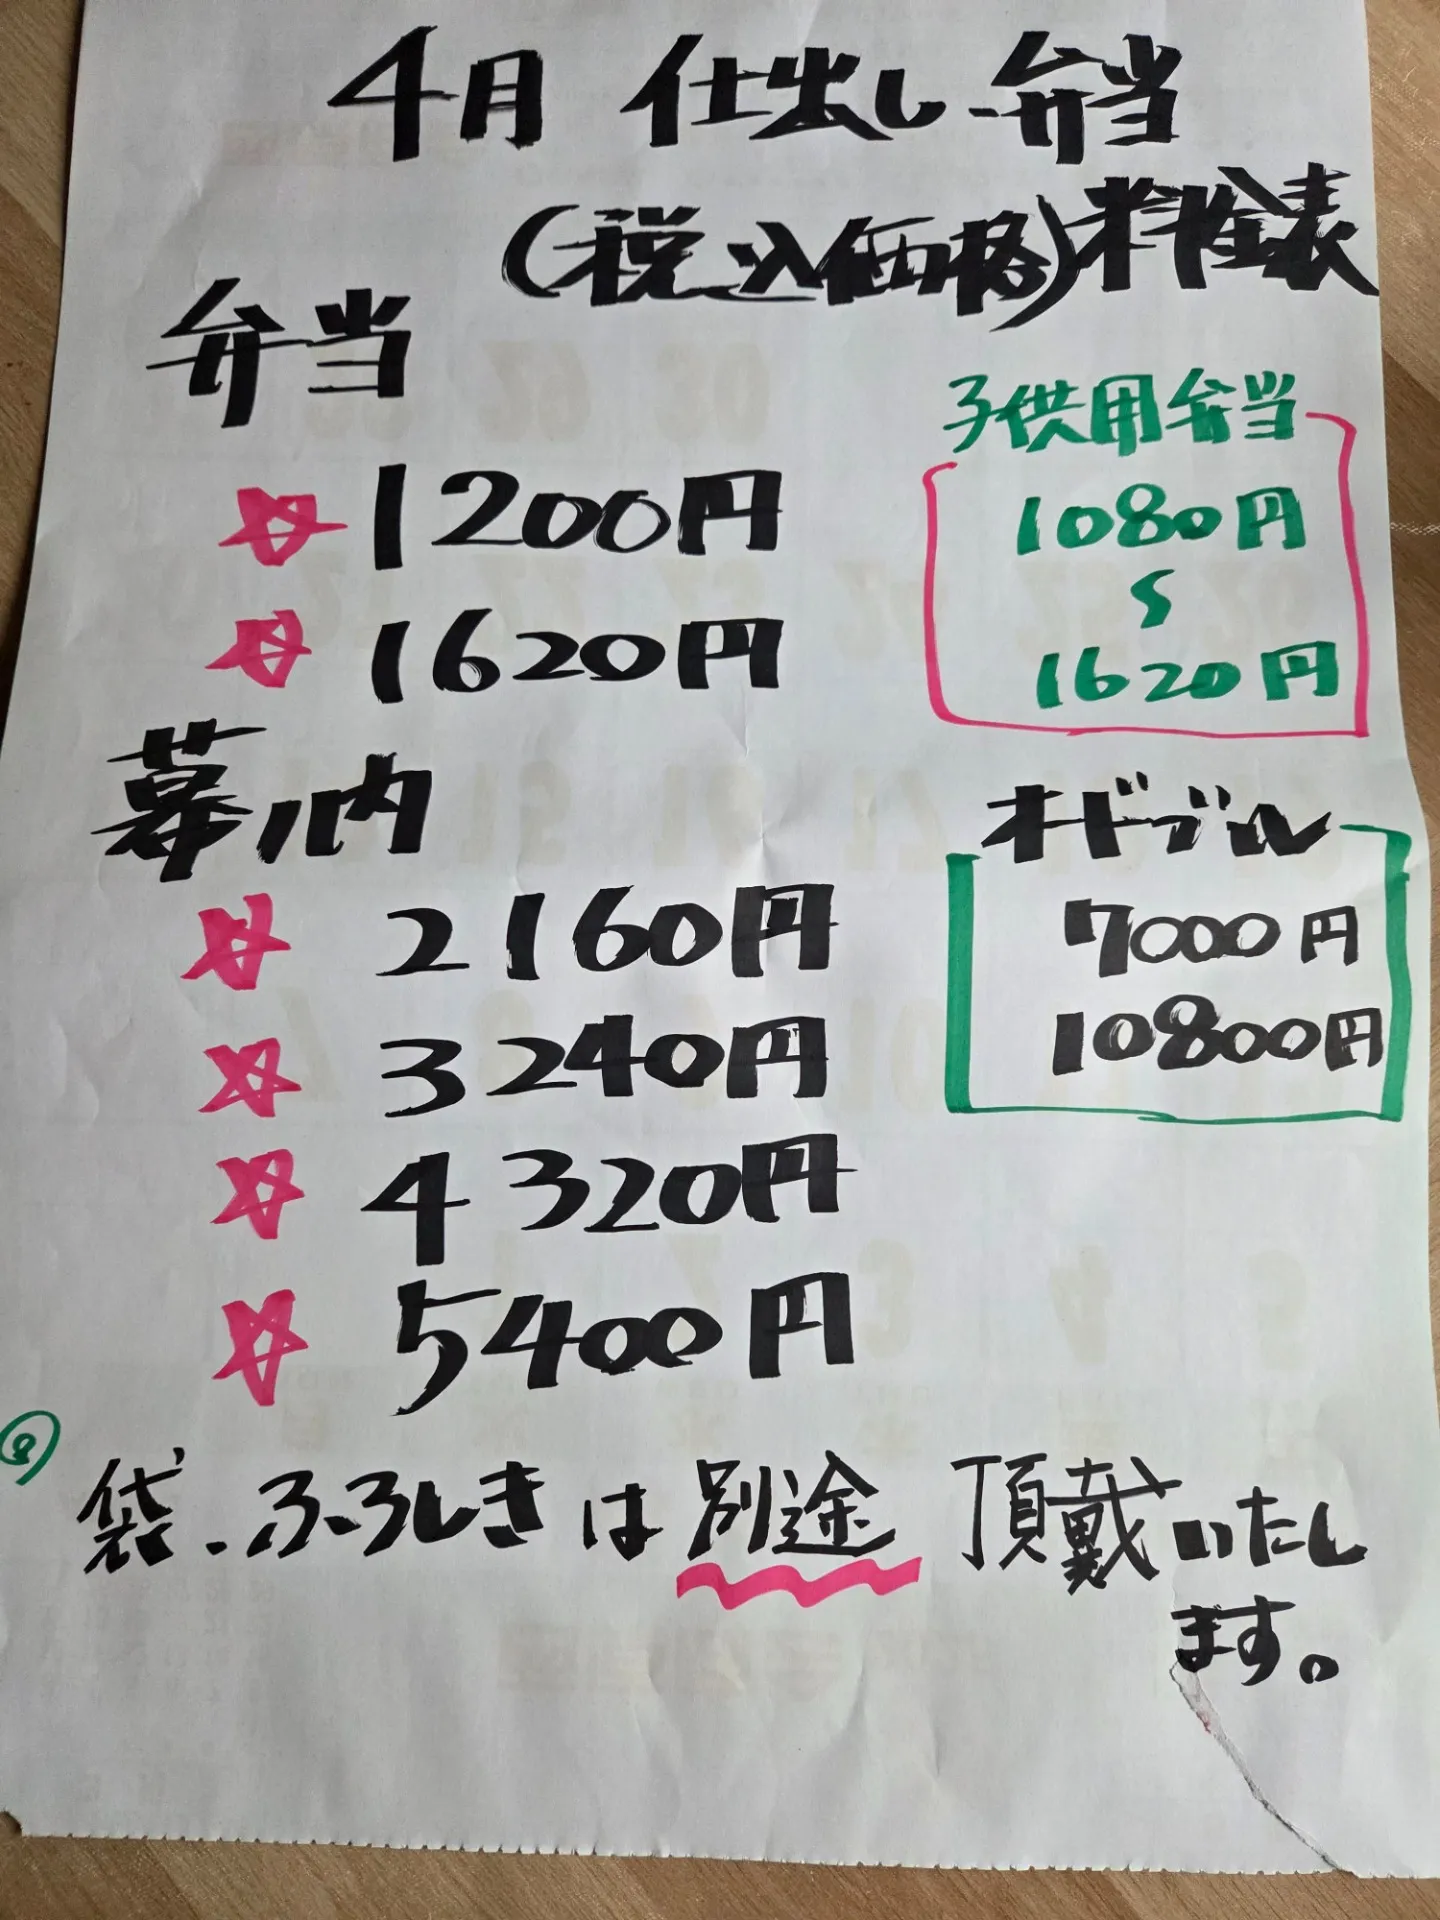 4月 仕出し弁当
(税込価格)料金表
弁当
☆ 1200円
☆ 1620円
子供用弁当
1080円
〜
1620円
幕ノ内
☆ 2160円
☆ 3240円
☆ 4320円
☆ 5400円
オドブル
7000円
10800円
袋.ふろしきは別途 頂戴いたし
ます。